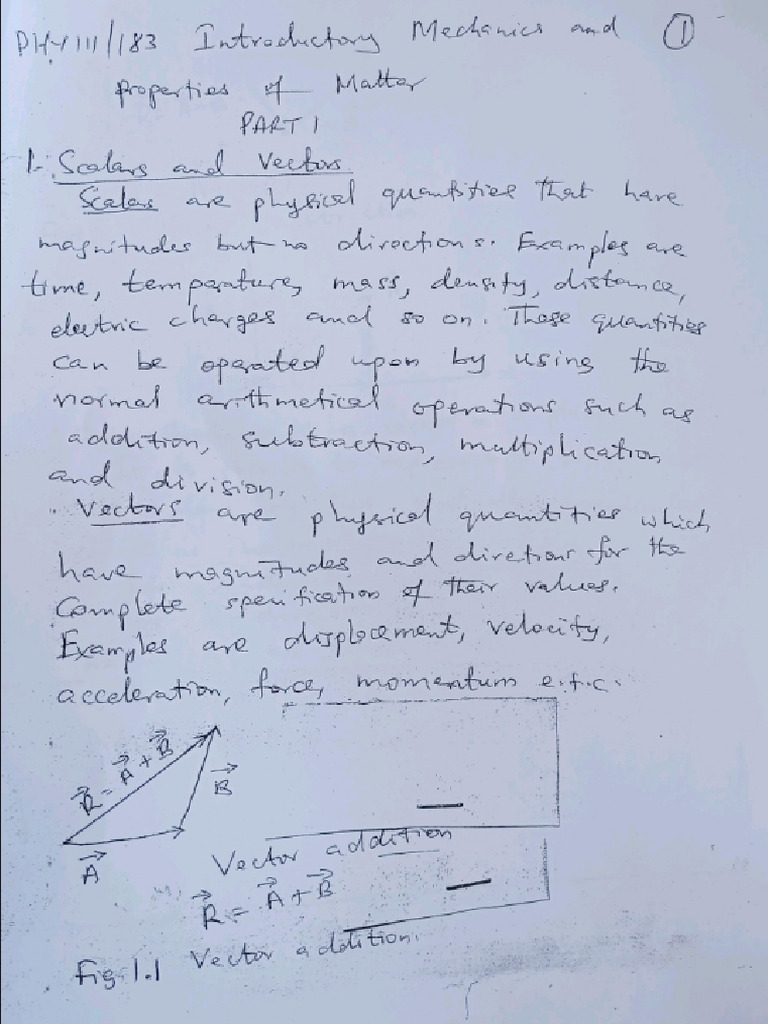 PHY111/183 Introductory Mechanics and ①
properties of Matter
PART 1
1. Scalars and Vectors
Scalars are physical quantities that have
magnitudes but no directions. Examples are
time, temperature, mass, density, distance,
electric charges and so on. These quantities
can be operated upon by using the
normal arithmetical operations such as
addition, subtraction, multiplication
and division.
Vectors are physical quantities which
have magnitudes and diretions for the
Complete specification of their values.
Examples are displacement, velocity,
acceleration, force, momentum e.t.c.
R⃗ = A⃗ + B⃗
B⃗
A⃗
Vector addition
R⃗ = A⃗ + B⃗
Fig. 1.1 Vector addition.